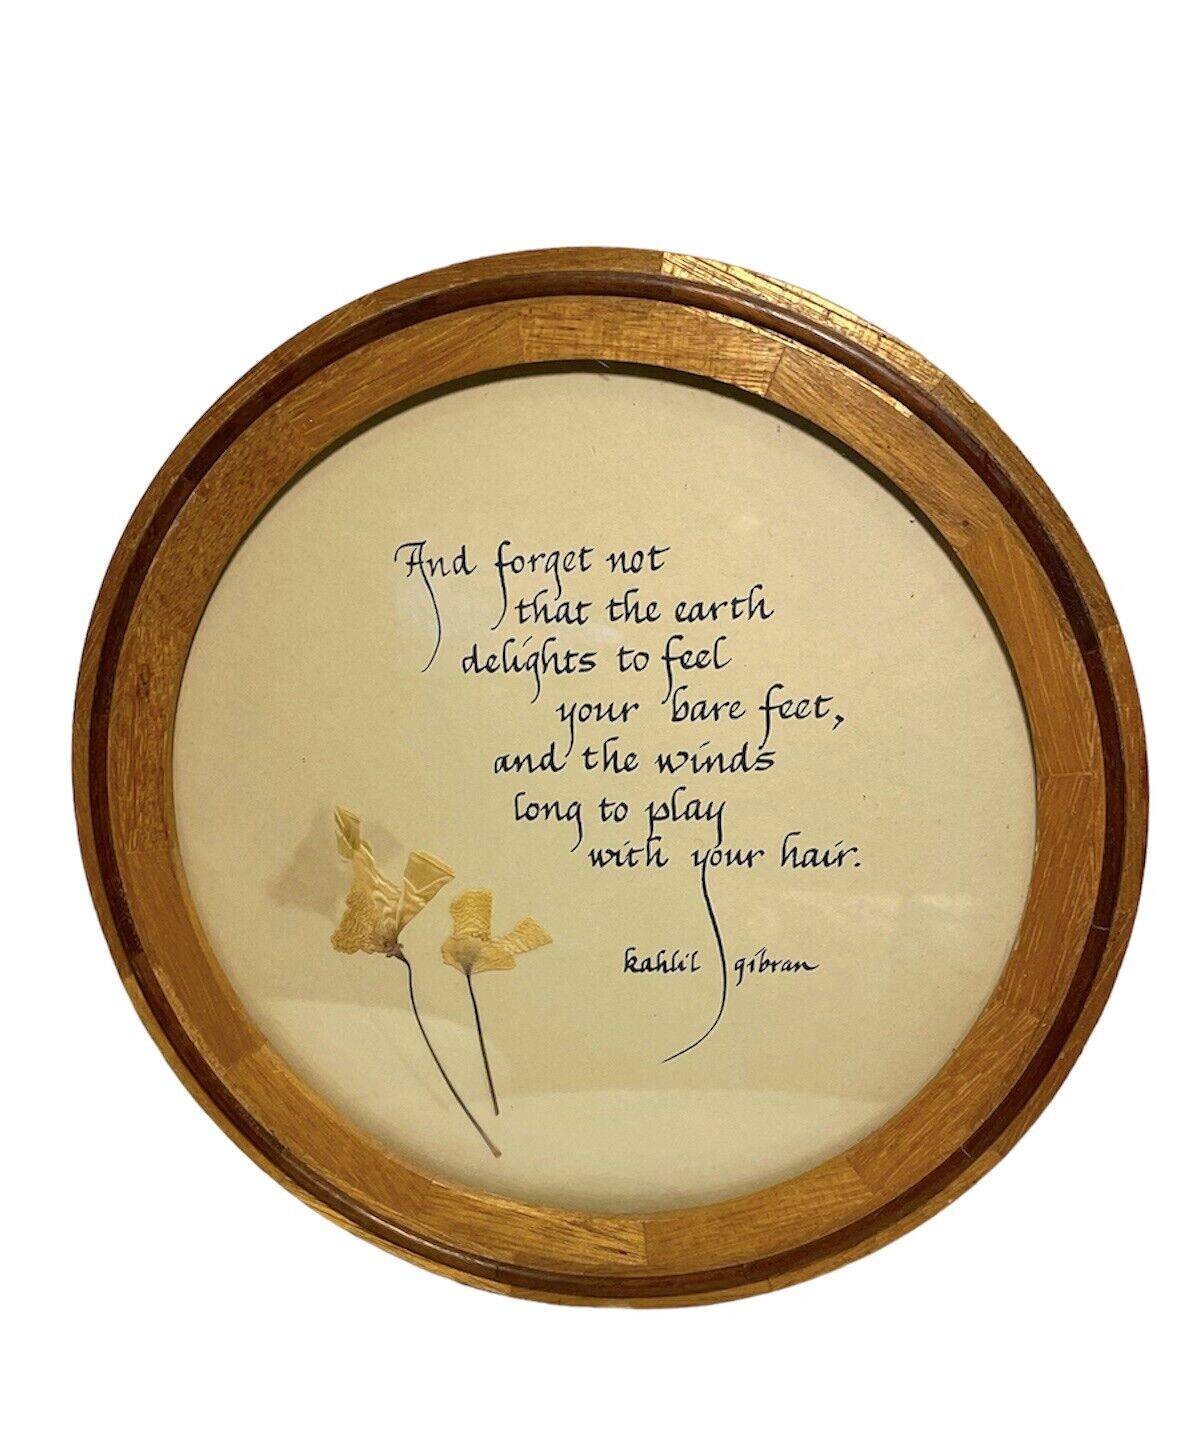 And forget not
that the earth
delights to feel
your bare feet,
and the winds
long to play
with your hair.
kahlil gibran